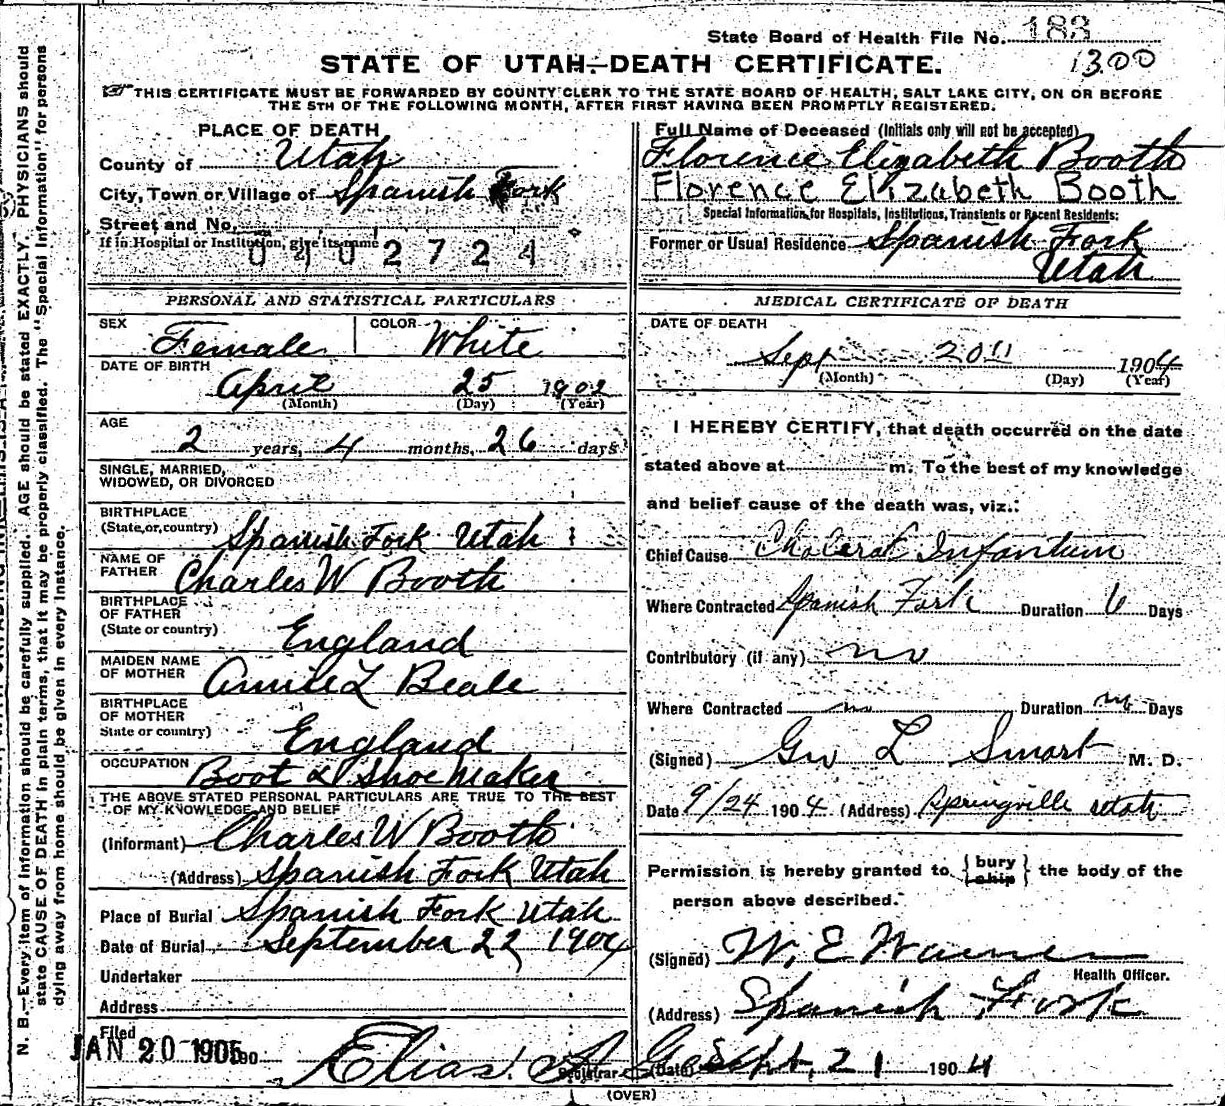 State Board of Health File No. 183
1300
STATE OF UTAH—DEATH CERTIFICATE.
THIS CERTIFICATE MUST BE FORWARDED BY COUNTY CLERK TO THE STATE BOARD OF HEALTH, SALT LAKE CITY, ON OR BEFORE
THE 5TH OF THE FOLLOWING MONTH, AFTER FIRST HAVING BEEN PROMPTLY REGISTERED.
PLACE OF DEATH
County of Utah
City, Town or Village of Spanish Fork
Street and No.
If in Hospital or Institution, give its name
0402724
PERSONAL AND STATISTICAL PARTICULARS
SEX Female COLOR White
DATE OF BIRTH
April 25 1902
(Month) (Day) (Year)
AGE
2 years, 4 months, 26 days
SINGLE, MARRIED,
WIDOWED, OR DIVORCED
BIRTHPLACE
(State or country) Spanish Fork Utah
NAME OF
FATHER Charles W Booth
BIRTHPLACE
OF FATHER
(State or country) England
MAIDEN NAME
OF MOTHER Annie L Beale
BIRTHPLACE
OF MOTHER
State or country) England
OCCUPATION Boot & Shoe Maker
THE ABOVE STATED PERSONAL PARTICULARS ARE TRUE TO THE BEST
OF MY KNOWLEDGE AND BELIEF
(Informant) Charles W Booth
(Address) Spanish Fork Utah
Place of Burial Spanish Fork Utah
Date of Burial September 22 1904
Undertaker
Address
Filed
JAN 20 1905 190
Elias
Registrar
Full Name of Deceased (Initials only will not be accepted)
Florence Elizabeth Booth
Florence Elizabeth Booth
Special Information for Hospitals, Institutions, Transients or Recent Residents:
Former or Usual Residence Spanish Fork
Utah
MEDICAL CERTIFICATE OF DEATH
DATE OF DEATH
Sept 20 1904
(Month) (Day) (Year)
I HEREBY CERTIFY, that death occurred on the date
stated above at m. To the best of my knowledge
and belief cause of the death was, viz.:
Chief Cause Infantum
Where Contracted Spanish Fork Duration 6 Days
Contributory (if any) no
Where Contracted no Duration no Days
(Signed) Geo L Smart M. D.
Date 9/24 1904 (Address) Springville Utah
Permission is hereby granted to { bury ship } the body of the
person above described.
(Signed) W. E. Warner
Health Officer.
(Address) Spanish Fork
(Date) Sept. 21 1904
(OVER)
N. B.—Every item of information should be carefully supplied. AGE should be stated EXACTLY. PHYSICIANS should
state CAUSE OF DEATH in plain terms, that it may be properly classified. The "Special Information" for persons
dying away from home should be given in every instance.